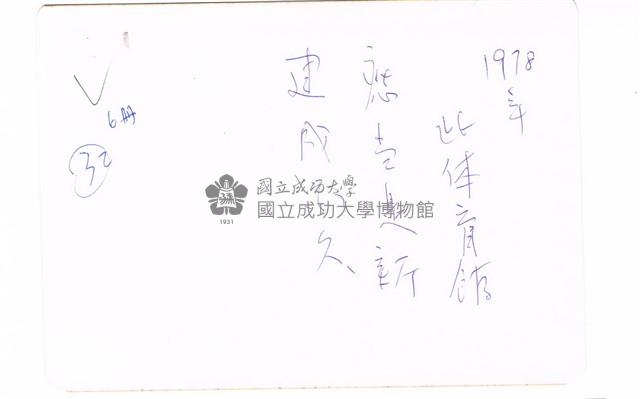 1978年
此体育館
應当是新
建成久
6冊
32
國立成功大學
國立成功大學博物館
1931